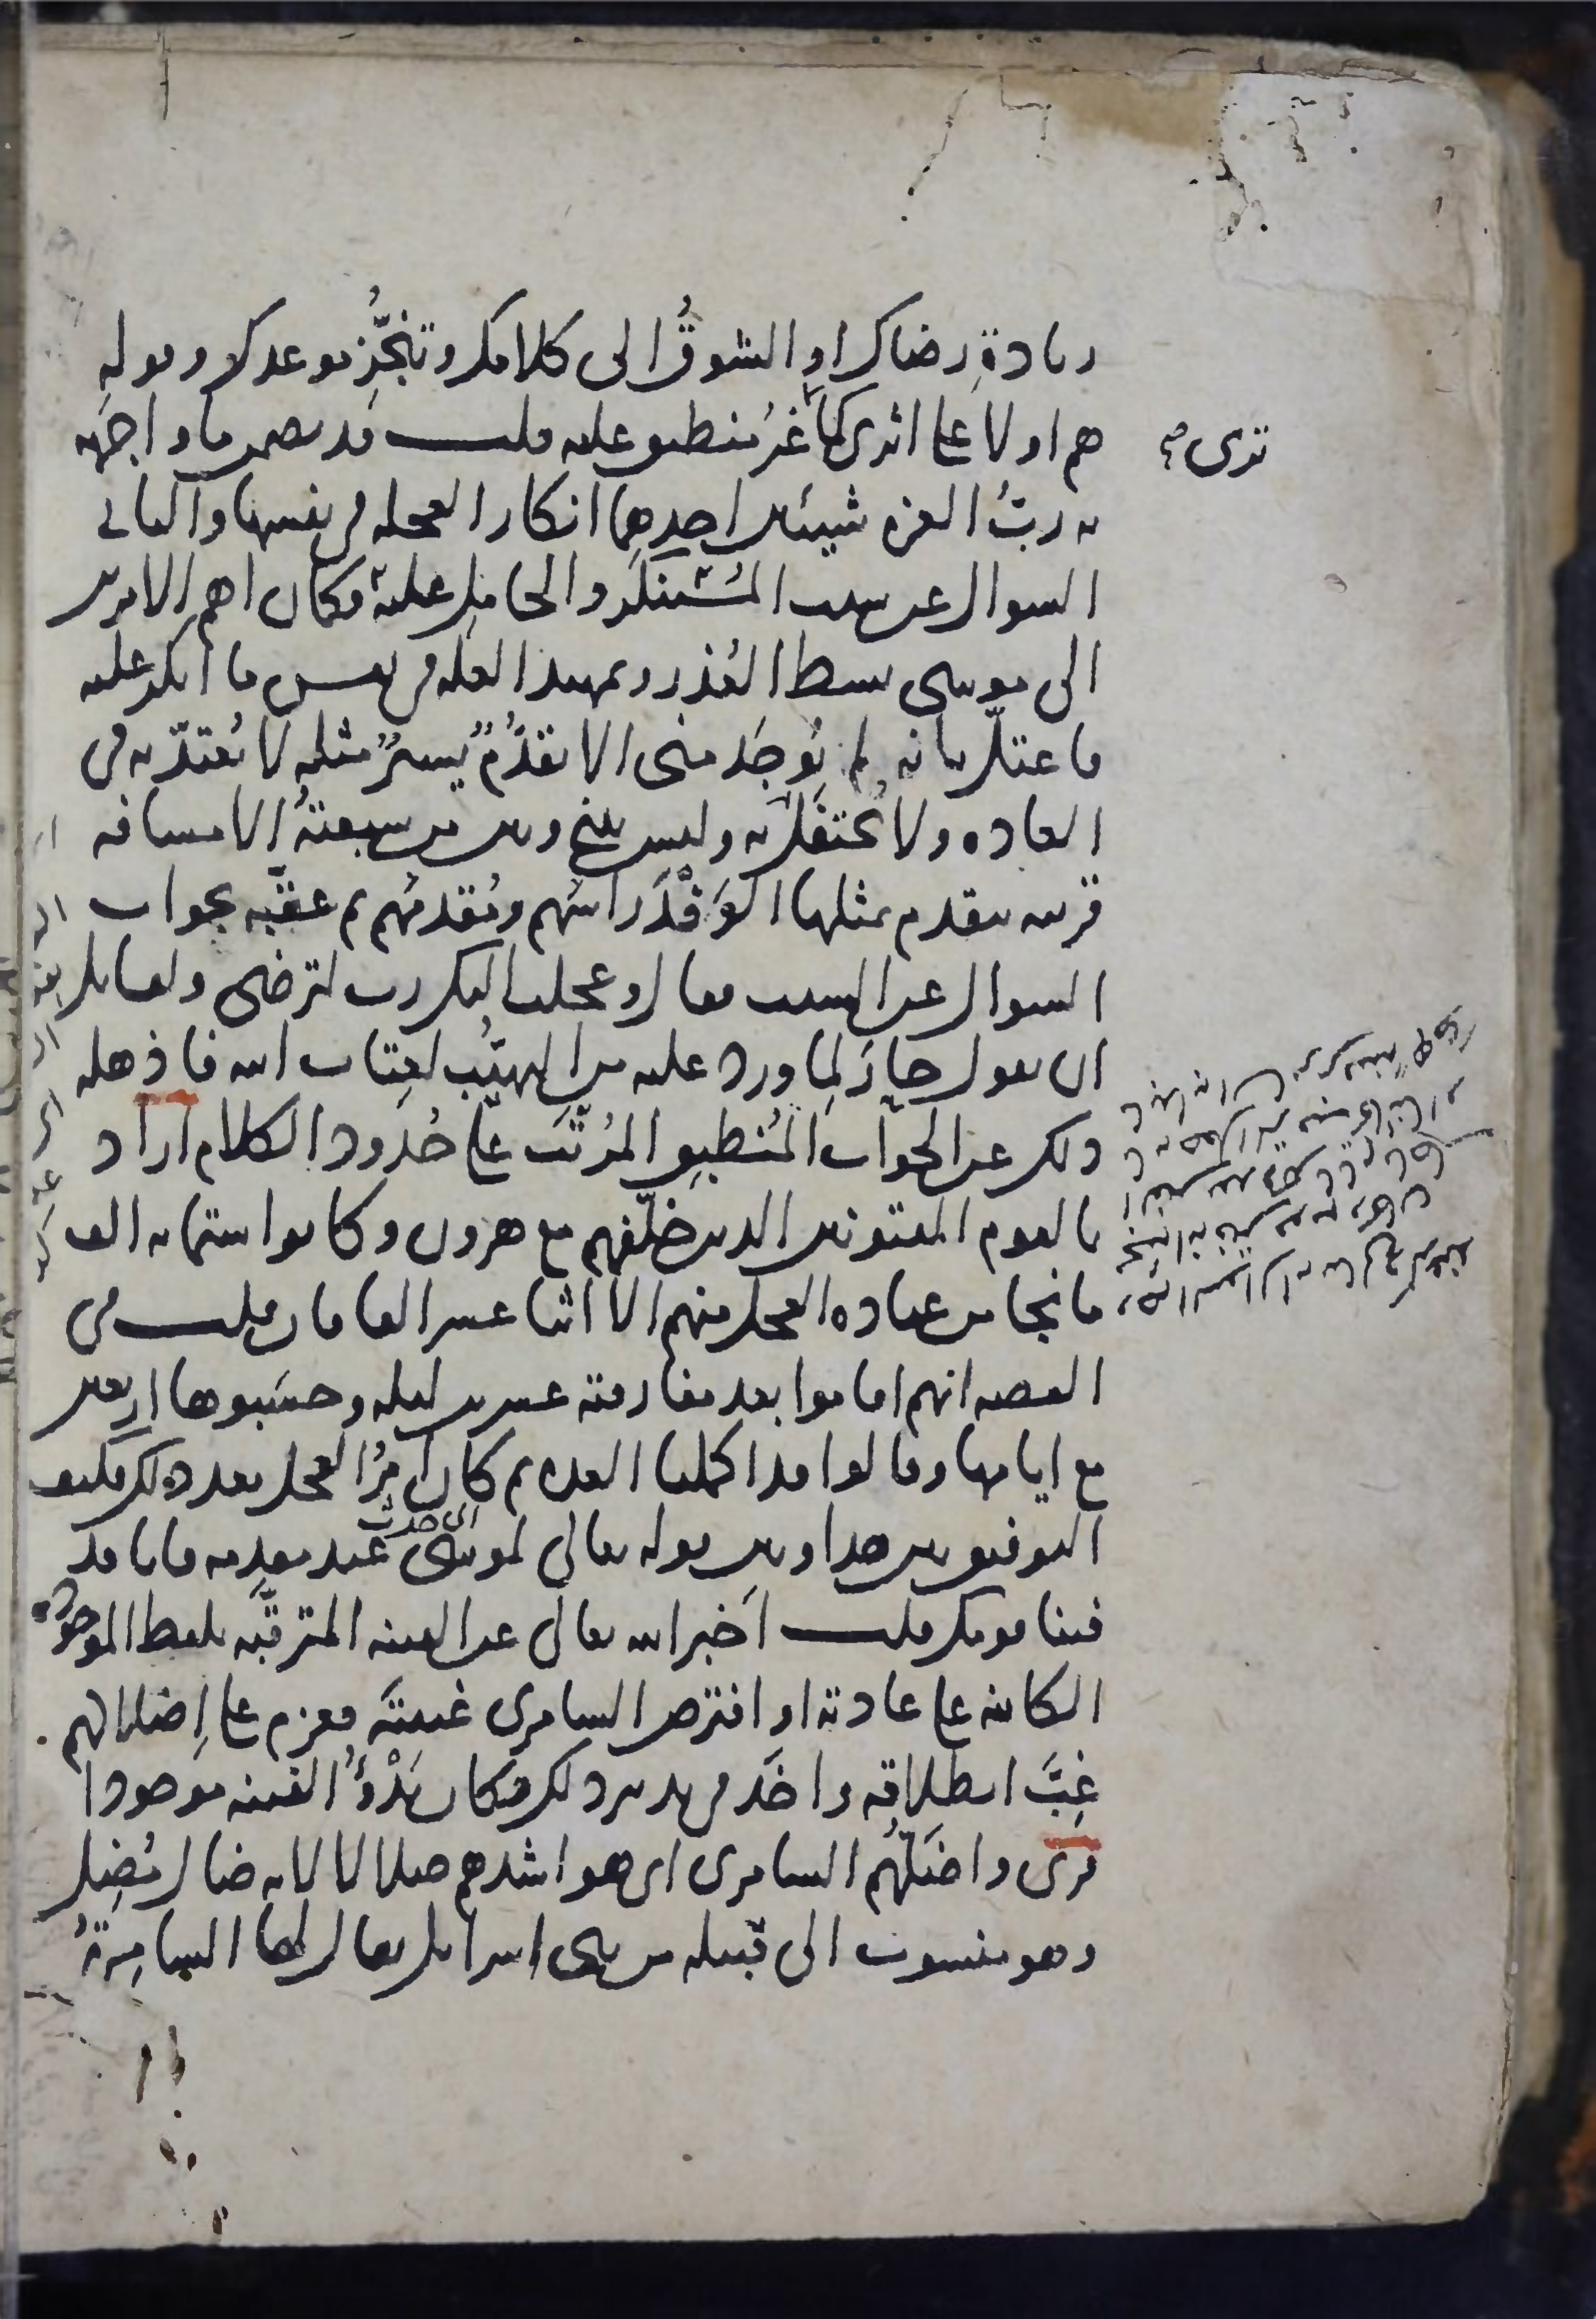 زيادة رضاك او الشوق الى كلامك وتنجّز موعدك وقوله
هم اولاء على اثري كما ترى غير منطبق عليه قلت قد تضمن ما واجهه
ترى صح
به ربّ العزه شيئين احدهما انكار العجلة في نفسها والثاني
السوال عن سبب المستنكر والحامل عليه فكان اهم الامرين
الى موسى بسط العُذر وتمهيد العلة في نفس ما انكر عليه
فاعتلّ بانه لم يُوجَد مني الا تقدّمٌ يسيرٌ مثله لا يُعتدّ به في
العاده ولا يُحتفل به وليس بيني وبين من سبقتهُ الا مسافه
قريبه يتقدم بمثلها الوَفْدَ راسُهم ومُقدمُهم ثم عقّبه بجواب
السوال عن السبب فقال وعجلت اليك رب لترضى ولقائل
ان يقول حارَ لِما ورد عليه من التهيّب لعتاب الله فاذهله
ذلك عن الجواب المُنطبق المُرتّب على حُدود الكلام اراد
بالقوم المفتونين الذين خلّفهم مع هرون وكانوا ستمايه الف
ما نجا من عباده العجل منهم الا اثنا عشر الفا فان قلت في
القصه انهم اقاموا بعد مفارقته عشرين ليله وحسَبوها اربعين
مع ايامها وقالوا قد اكملنا العده ثم كان امرُ العجل بعد ذلك فكيف
التوفيق بين هذا وبين قوله تعالى لموسى عند مقدمه فانا قد
فتنا قومك قلت اخبر الله تعالى عن الفتنه المترقّبه بلفظ الموجوده
الكائنه على عادته او افترص السامري غيبتَه فعزم على اِضلالهم
غِبَّ انطلاقه واخَذ في تدبير ذلك فكان بَدْؤُ الفتنه موجودا
قرى واضَلّهُم السامري اى هو اشدهم ضلالا لانه ضال مُضِل
وهو منسوب الى قبيله من بني اسرايل يقال لها السامِرةُ